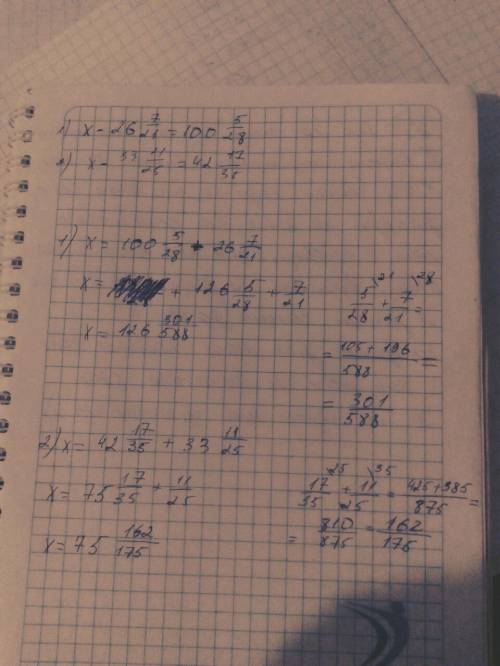 1) x - 26 7/21 = 100 5/28
2) x - 33 11/25 = 42 17/35
1) x = 100 5/28 + 26 7/21
x = + 126 5/28 + 7/21
x = 126 301/588
5/28 \21 + 7/21 \28 =
= 105 + 196 / 588 =
= 301/588
2) x = 42 17/35 + 33 11/25
x = 75 17/35 + 11/25
x = 75 162/175
17/35 \25 + 11/25 \35 = 425 + 385 / 875 =
= 810/875 = 162/175